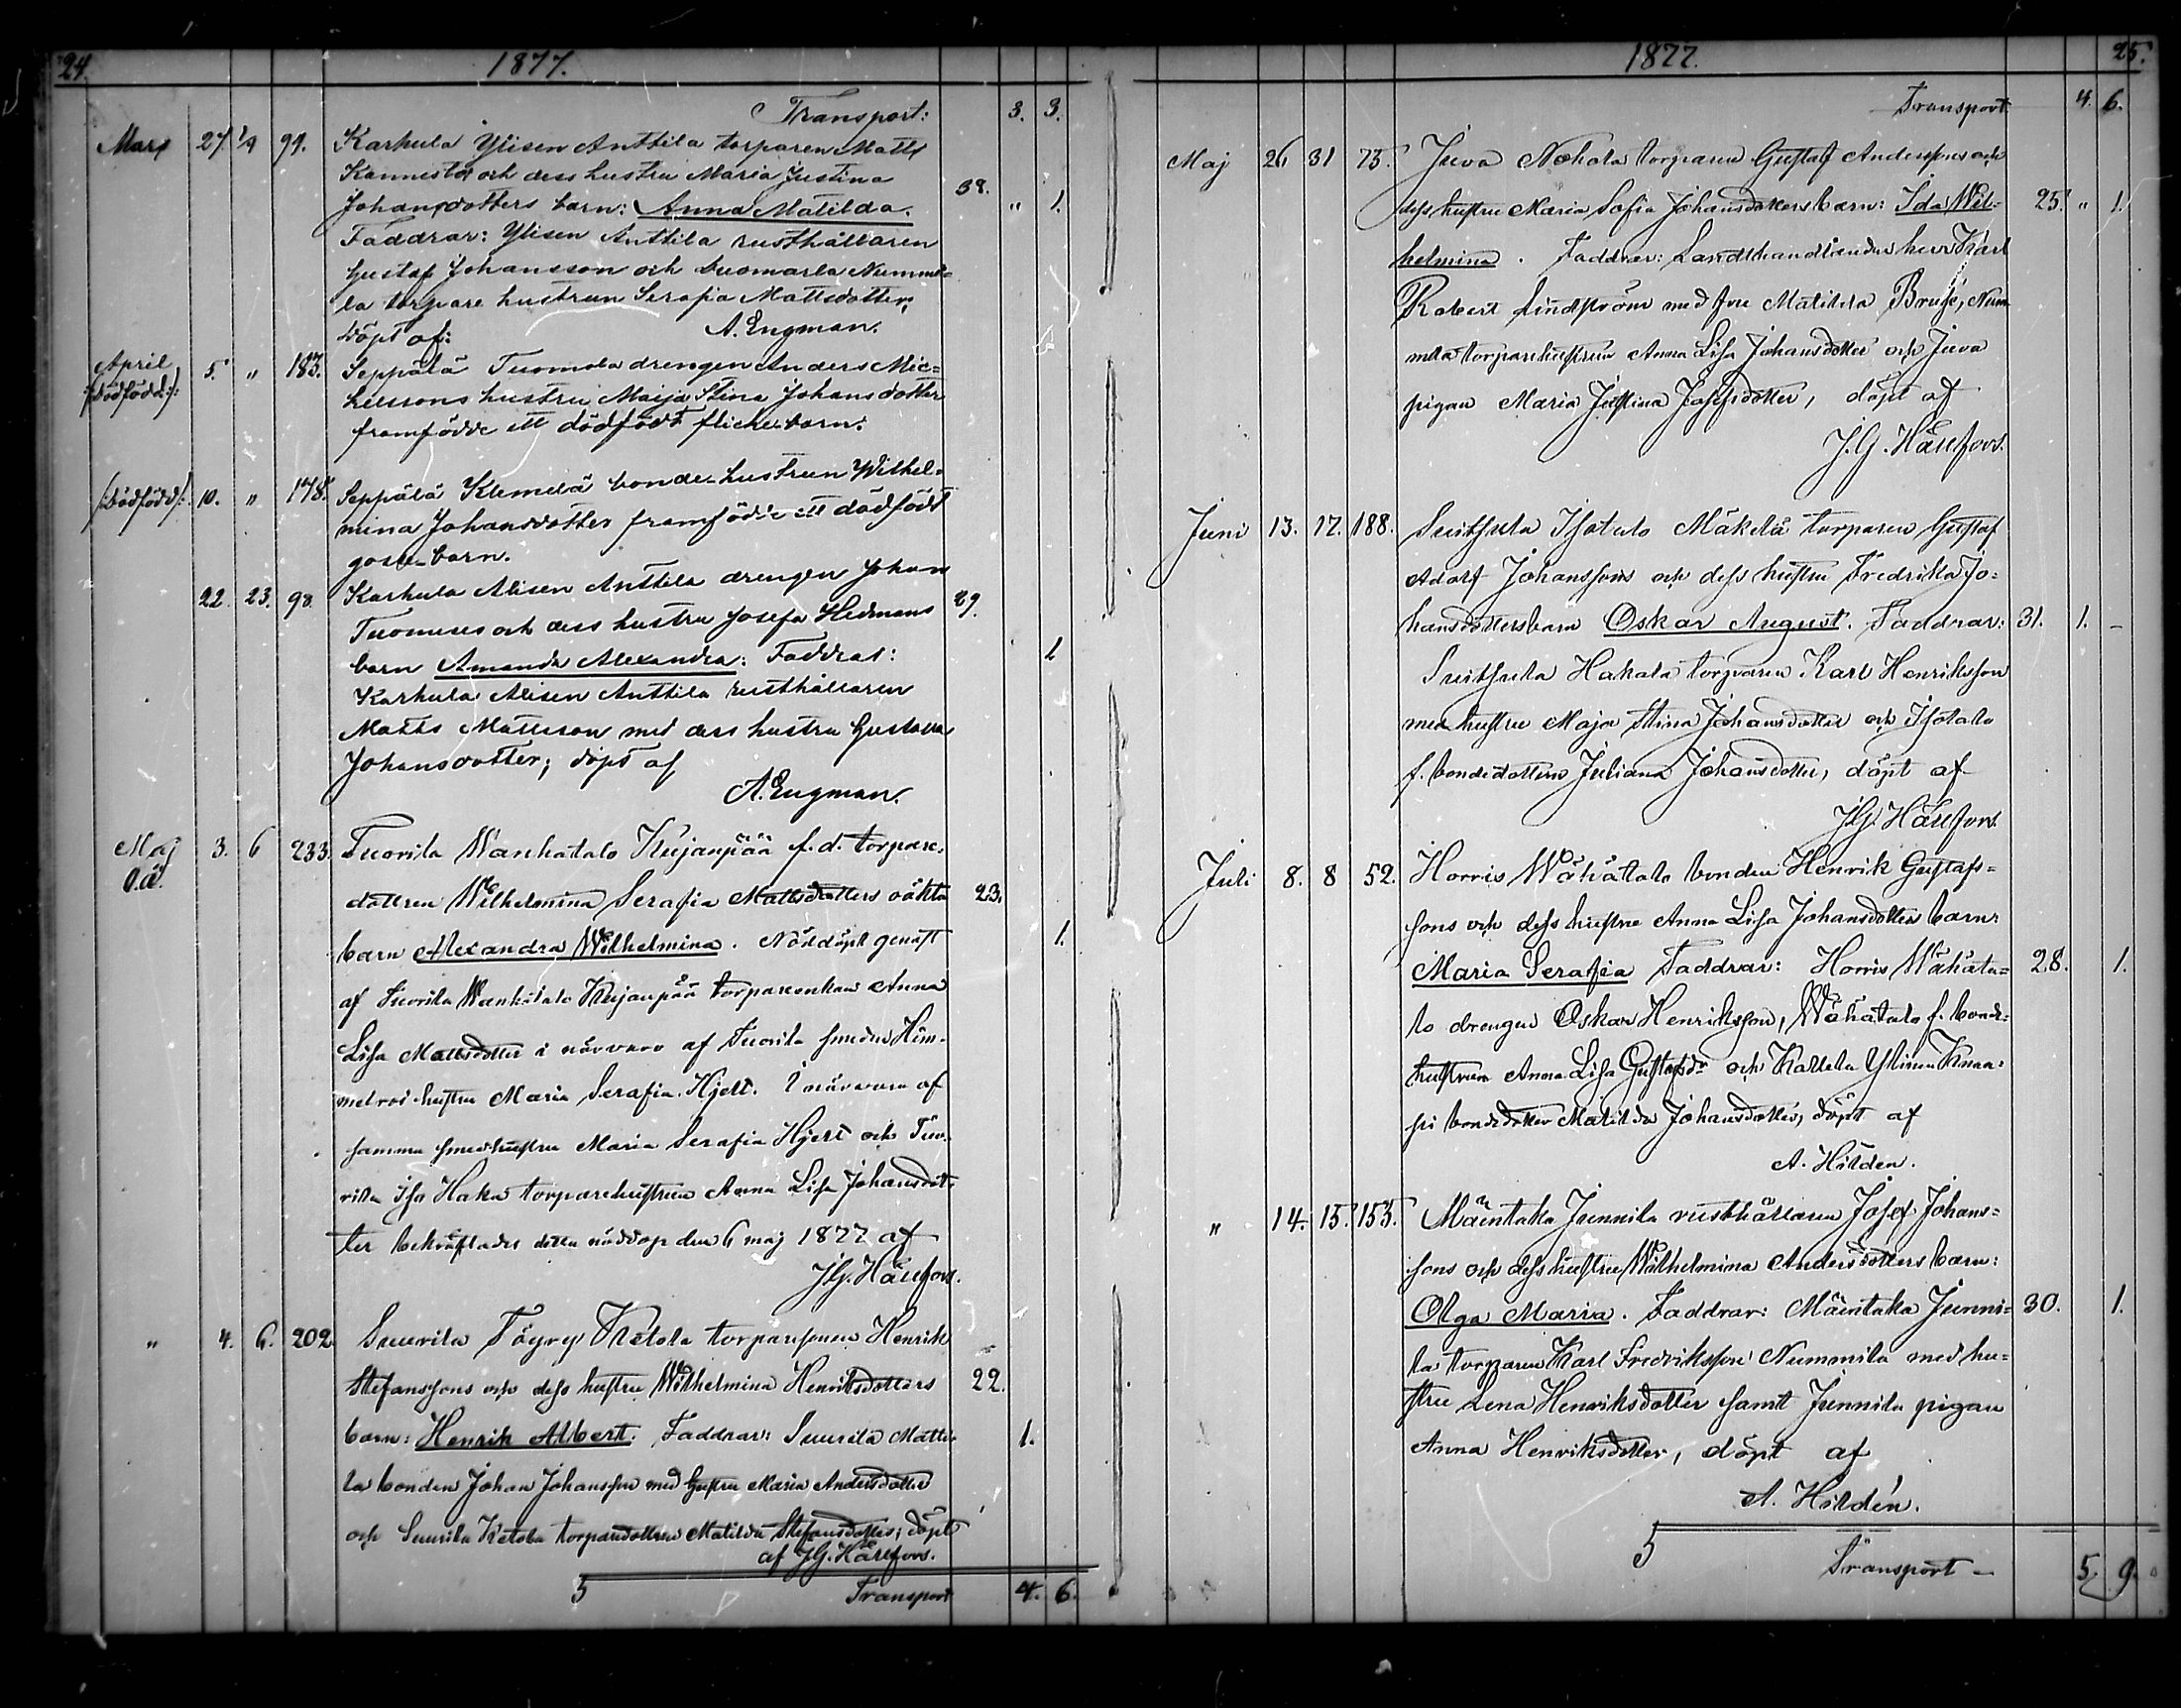 24. 1877.
Transport: 3. 3.
Mars 27. 1/4 99. Karhula Ylisen Anttila torparen Matts
Kannisto och dess hustru Maria Justina 38.
Johansdotters barn: Anna Matilda. " 1.
Faddrar: Ylisen Anttila rusthållaren
Gustaf Johansson och Numme-
la torpare hustrun Serafia Mattsdotter;
döpt af: A. Engman.
April 5. " 183. Seppälä Tuomola drengen Anders Mic-
/:dödfödd:/ helssons hustru Maija Stina Johansdotter
framfödde ett dödfödt flickebarn.
/:dödfödd:/ 10. " 178. Seppälä Klemelä bonde-hustrun Wilhel-
mina Johansdotter framfödde ett dödfödt
gosse-barn.
22. 23. 98. Karhula Alisen Anttila drengen Johan
Tuomises och dess hustru Josefa Hedmans 29.
barn Amanda Alexandra: Faddrar: 1
Karhula Alisen Anttila rusthållaren
Matts Mattsson med dess hustru Gustava
Johansdotter; döpt af
A. Engman.
Maj 3. 6 233. Tuorila Wanhatalo Kujanpää f. d. torpare-
O.ä. dottren Wilhelmina Serafia Mattsdotters oäkta 23.
barn Alexandra Wilhelmina. Nöddöpt genast 1.
af Tuorila Wanhatalo Kujanpää torpareenkan Anna
Lisa Mattsdotter i närvaro af Tuorila smeden Him-
melroos hustru Maria Serafia Hjelt. I närvaro af
samma smedhustru Maria Serafia Hjelt och Tuo-
rila Iso Haka torparehustrun Anna Lisa Johansdot-
ter bekräftades detta nöddop den 6 maj 1877 af
J.G. Hällfors.
" 4. 6. 202. Suurila Töyry Ketola torparesonen Henrik
Stefanssons och dess hustru Wilhelmina Henriksdotters 22.
barn: Henrik Albert. Faddrar: Suurila Matti- 1.
la bonden Johan Johansson med hustru Maria Andersdotter
och Suurila Ketola torparedottren Matilda Stefansdotter; döpt
af J.G. Hällfors.
5 Transport 4. 6.
1877. 25.
Transport 4. 6.
Maj 26 31 75. Juva Nohola torparen Gustaf Anderssons och
dess hustru Maria Sofia Johansdotters barn: Ida Wil- 25. " 1.
helmina. Faddrar: Landthandlanden herr Karl
Robert Lindström med fru Matilda, Num-
mela torparehustrun Anna Lisa Johansdotter och Juva
pigan Maria Justina Josefsdotter, döpt af
J.G. Hällfors.
Juni 13. 17. 188. Suitsula Isotalo Mäkelä torparen Gustaf
Adolf Johanssons och dess hustru Fredrika Jo-
hansdotters barn Oskar August. Faddrar: 31. 1. -
Suitsula Hakala torparen Karl Henriksson
med hustru Maja Stina Johansdotter och Isotalo
f. bondedottren Juliana Johansdotter, döpt af
J.G. Hällfors.
Juli 8. 8 52. Horris Wähätalo bonden Henrik Gustafs-
sons och dess hustru Anna Lisa Johansdotters barn
Maria Serafia Faddrar: Horris Wähäta- 28. 1.
lo drengen Oskar Henriksson, Wähätalo f. bonde-
hustrun Anna Lisa Gustafsdr och Kallela Ylinen Knaa-
pi bondedotter Matilda Johansdotter, döpt af
A. Hildén.
" 14. 15. 153. Mäentaka Junnila rusthållaren Josef Johans-
sons och dess hustru Wilhelmina Andersdotters barn:
Olga Maria. Faddrar: Mäentaka Junni- 30. 1.
la torparen Karl Fredriksson Nummila med hu-
stru Lena Henriksdotter samt Junnila pigan
Anna Henriksdotter, döpt af
A. Hildén.
5 Transport - 5. 9.